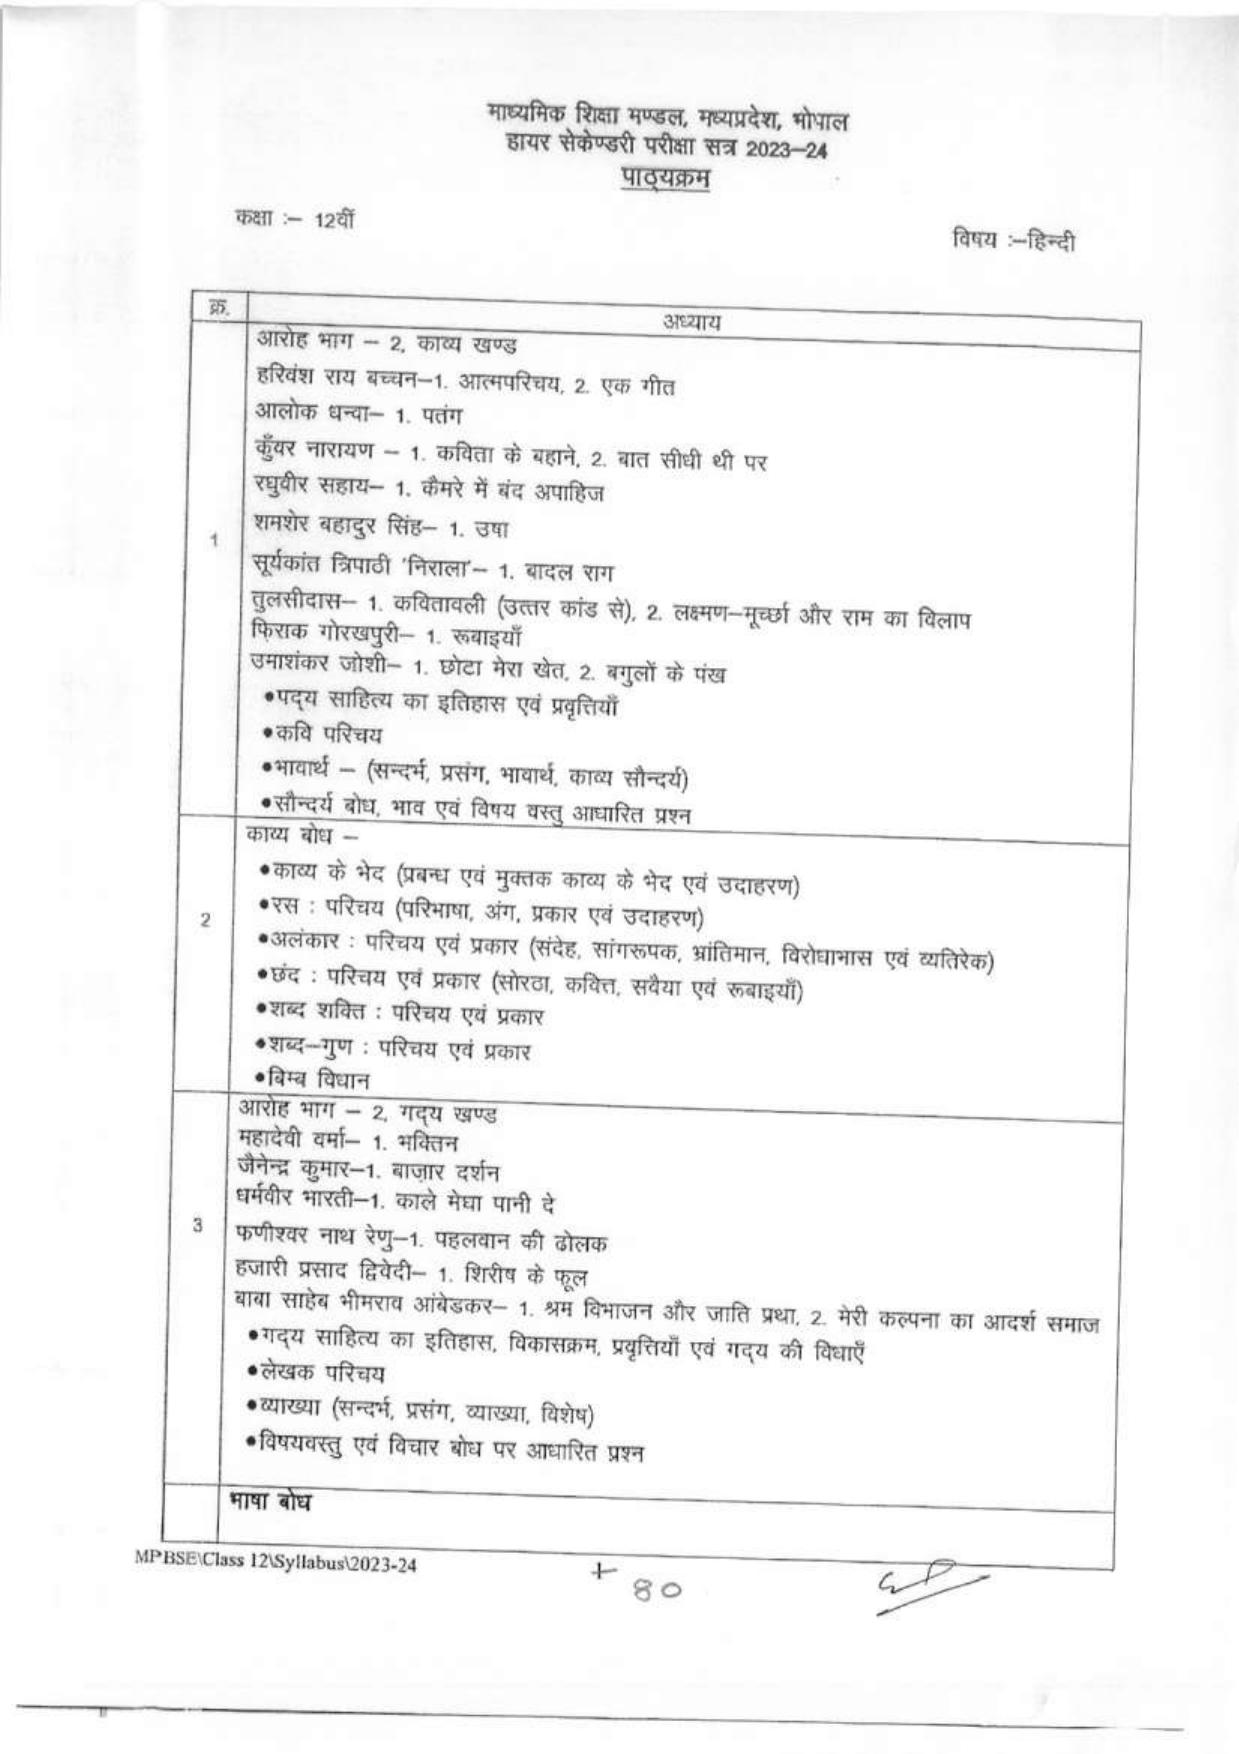 माध्यमिक शिक्षा मण्डल, मध्यप्रदेश, भोपाल
हायर सेकेण्डरी परीक्षा सत्र 2023–24
पाठ्यक्रम
कक्षा :– 12वीं
विषय :–हिन्दी
क्र. अध्याय
आरोह भाग – 2, काव्य खण्ड
हरिवंश राय बच्चन–1. आत्मपरिचय, 2. एक गीत
आलोक धन्वा– 1. पतंग
कुँवर नारायण – 1. कविता के बहाने, 2. बात सीधी थी पर
रघुवीर सहाय– 1. कैमरे में बंद अपाहिज
शमशेर बहादुर सिंह– 1. उषा
1
सूर्यकांत त्रिपाठी 'निराला'– 1. बादल राग
तुलसीदास– 1. कवितावली (उत्तर कांड से), 2. लक्ष्मण–मूर्च्छा और राम का विलाप
फिराक गोरखपुरी– 1. रूबाइयाँ
उमाशंकर जोशी– 1. छोटा मेरा खेत, 2. बगुलों के पंख
●पद्य साहित्य का इतिहास एवं प्रवृत्तियाँ
●कवि परिचय
●भावार्थ – (सन्दर्भ, प्रसंग, भावार्थ, काव्य सौन्दर्य)
●सौन्दर्य बोध, भाव एवं विषय वस्तु आधारित प्रश्न
काव्य बोध –
●काव्य के भेद (प्रबन्ध एवं मुक्तक काव्य के भेद एवं उदाहरण)
2
●रस : परिचय (परिभाषा, अंग, प्रकार एवं उदाहरण)
●अलंकार : परिचय एवं प्रकार (संदेह, सांगरूपक, भ्रांतिमान, विरोधाभास एवं व्यतिरेक)
●छंद : परिचय एवं प्रकार (सोरठा, कवित्त, सवैया एवं रूबाइयाँ)
●शब्द शक्ति : परिचय एवं प्रकार
●शब्द–गुण : परिचय एवं प्रकार
●बिम्ब विधान
आरोह भाग – 2, गद्य खण्ड
महादेवी वर्मा– 1. भक्तिन
जैनेन्द्र कुमार–1. बाज़ार दर्शन
धर्मवीर भारती–1. काले मेघा पानी दे
3
फणीश्वर नाथ रेणु–1. पहलवान की ढोलक
हजारी प्रसाद द्विवेदी– 1. शिरीष के फूल
बाबा साहेब भीमराव आंबेडकर– 1. श्रम विभाजन और जाति प्रथा, 2. मेरी कल्पना का आदर्श समाज
●गद्य साहित्य का इतिहास, विकासक्रम, प्रवृत्तियाँ एवं गद्य की विधाएँ
●लेखक परिचय
●व्याख्या (सन्दर्भ, प्रसंग, व्याख्या, विशेष)
●विषयवस्तु एवं विचार बोध पर आधारित प्रश्न
भाषा बोध
MPBSE\Class 12\Syllabus\2023-24
+ 80